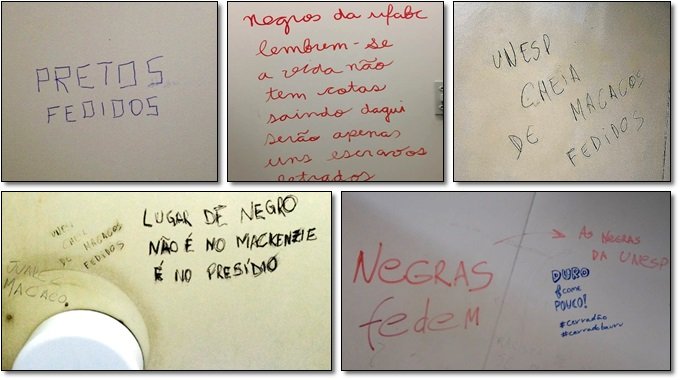 PRETOS
FEDIDOS
negros da ufabc
lembrem-se
a vida não
tem cotas
saindo daqui
serão apenas
uns escravos
letrados
UNESP
CHEIA
DE MACACOS
FEDIDOS
UNESP
CHEIA
DE MACACOS
FEDIDOS
JUAREZ
MACACO.
LUGAR DE NEGRO
NÃO É NO MACKENZIE
É NO PRESÍDIO
NEGRAS
fedem
AS NEGRAS
DA UNESP
DURO
é come
POUCO!
#cerradão